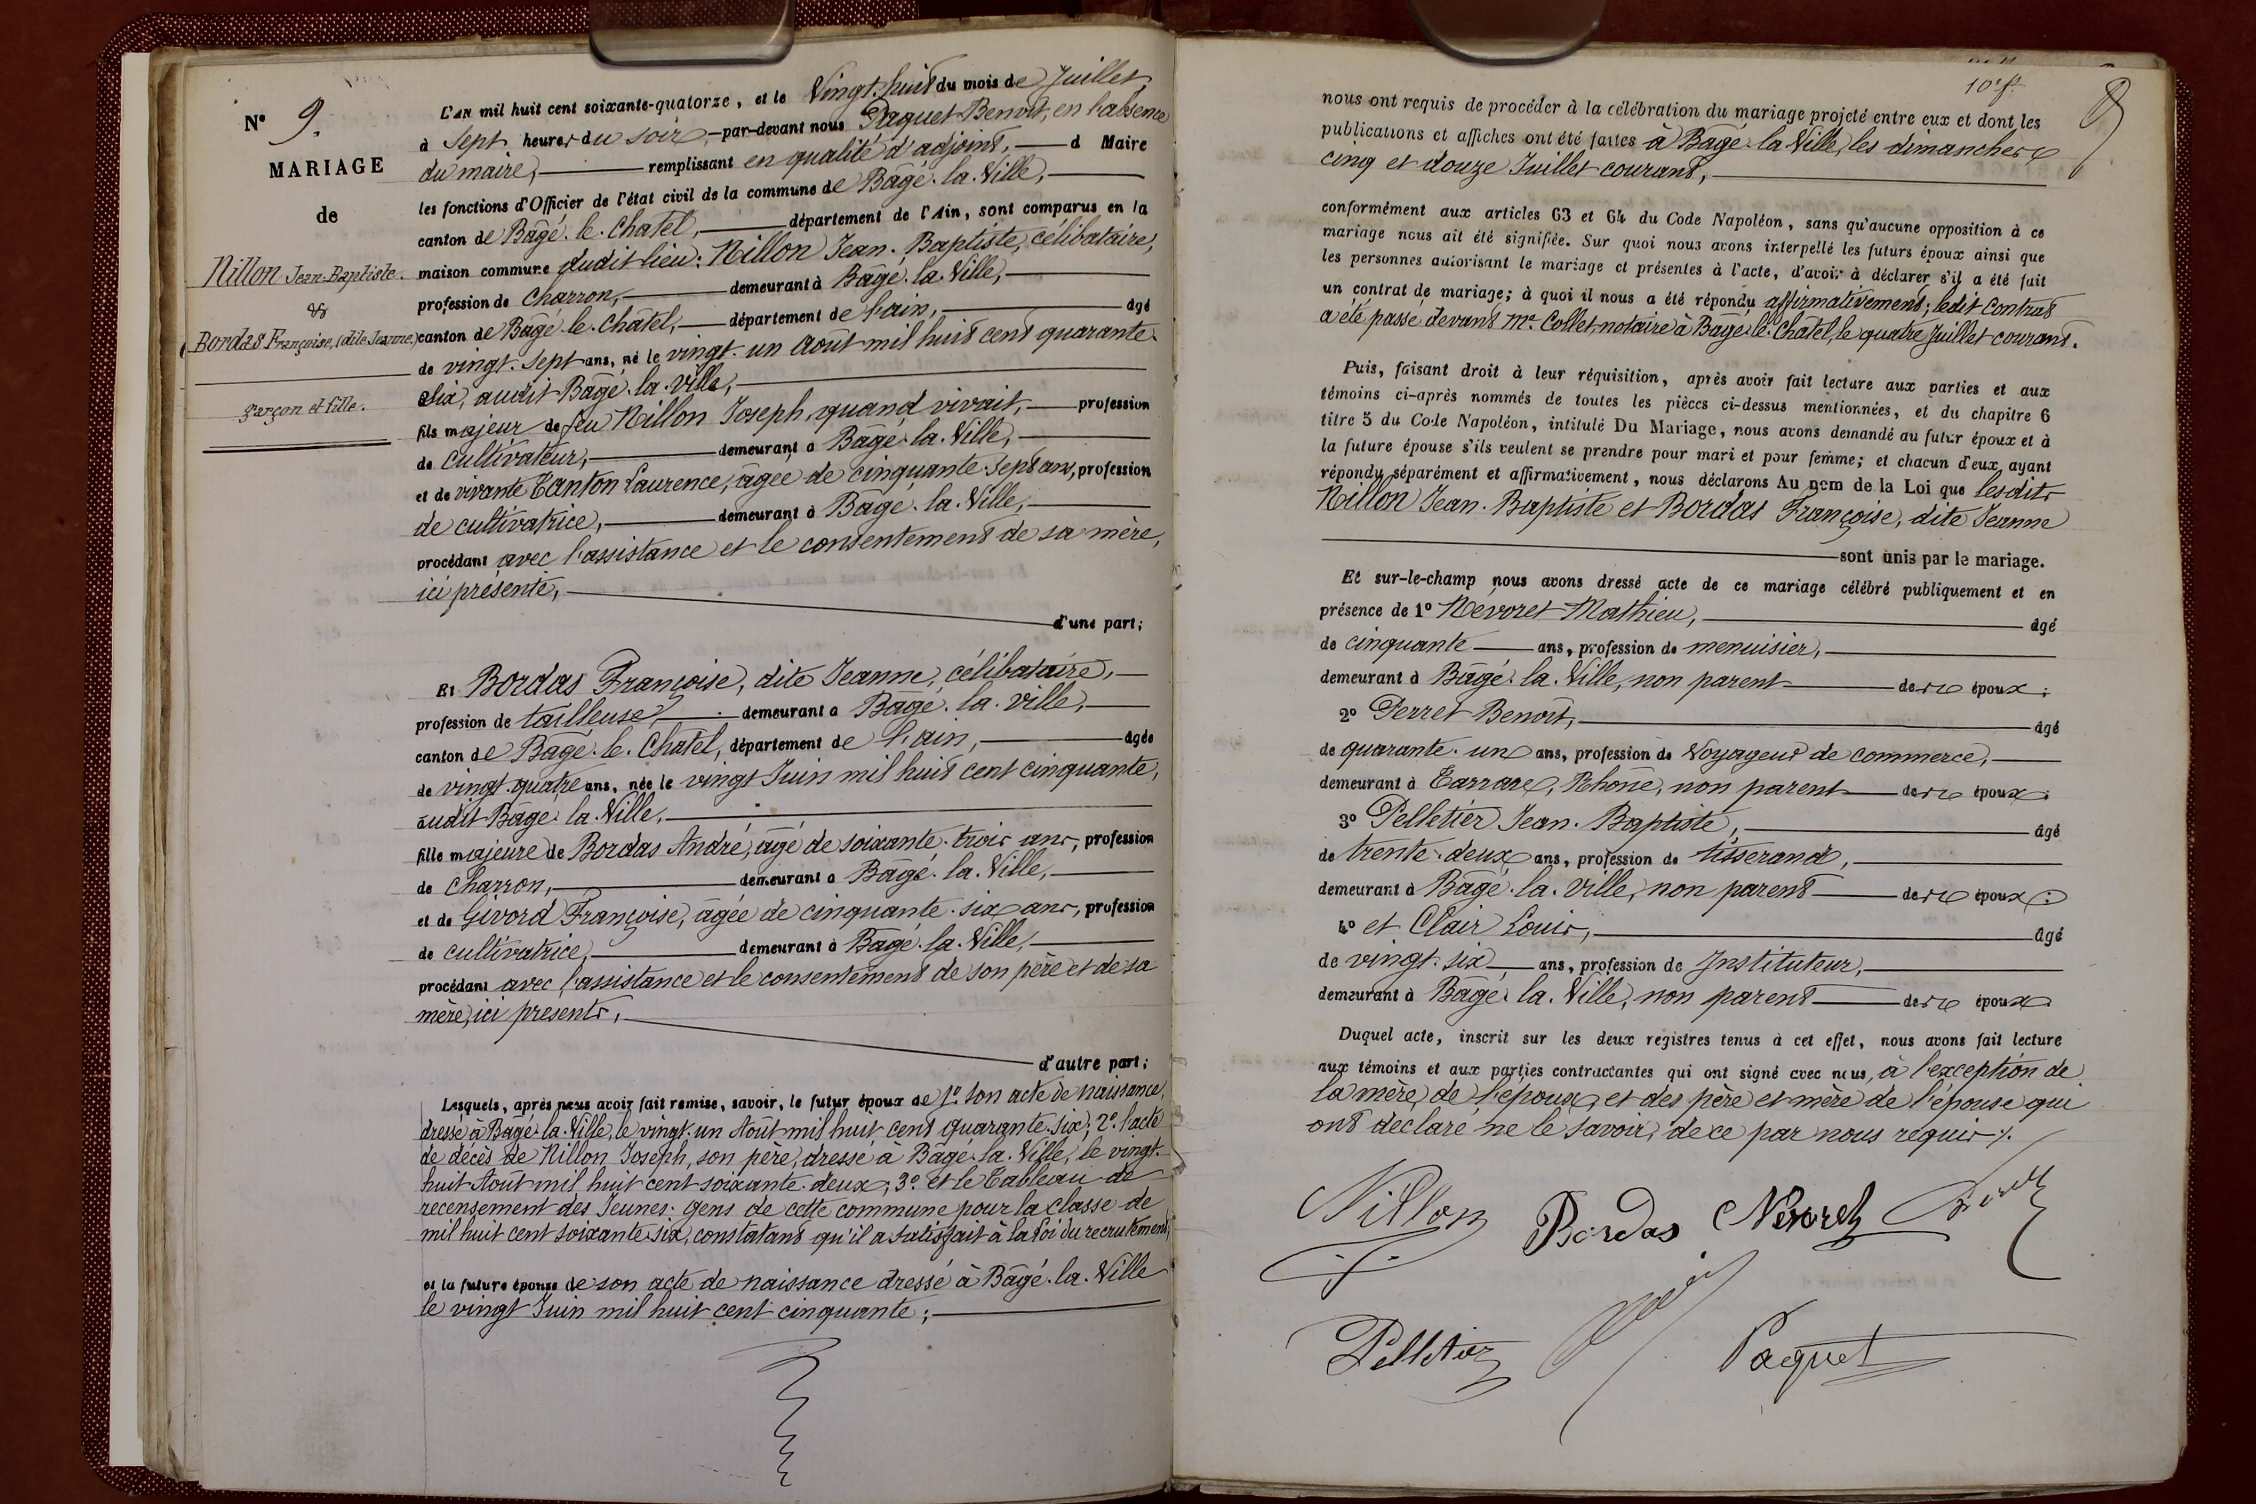 N° 9.
MARIAGE
de
Nillon Jean-Baptiste.
&
Bordas Françoise, (dite Jeanne)
garçon et fille.
L'AN mil huit cent soixante-quatorze, et le Vingt-huit du mois de Juillet
à Sept heures du soir, par-devant nous Paquet Benoit, en l'absence
du maire, remplissant en qualité d'adjoint, d Maire
les fonctions d'Officier de l'état civil de la commune de Bâgé-la-Ville,
canton de Bâgé-le-Chatel, département de l'Ain, sont comparus en la
maison commune dudit lieu: Nillon Jean-Baptiste, célibataire,
profession de Charron, demeurant à Bâgé-la-Ville,
canton de Bâgé-le-Châtel, département de l'ain, âgé
de vingt-sept ans, né le vingt-un Août mil huit cent quarante-
Six, audit Bâgé-la-Ville,
fils majeur de feu Nillon Joseph, quand vivait, profession
de cultivateur, demeurant à Bâgé-la-Ville,
et de vivante Tanton Laurence, âgée de cinquante-sept ans, profession
de cultivatrice, demeurant à Bâgé-la-Ville,
procédant avec l'assistance et le consentement de sa mère,
ici présente,
d'une part;
Et Bordas Françoise, dite Jeanne, célibataire,
profession de tailleuse, demeurant à Bâgé-la-Ville,
canton de Bâgé-le-Chatel, département de l'ain, âgée
de vingt-quatre ans, née le vingt Juin mil huit cent cinquante,
audit Bâgé-la-Ville,
fille majeure de Bordas André, âgé de soixante-trois ans, profession
de Charron, demeurant à Bâgé-la-Ville,
et de Givord Françoise, âgée de cinquante-six ans, profession
de cultivatrice, demeurant à Bâgé-la-Ville,
procédant avec l'assistance et le consentement de son père et de sa
mère, ici présents,
d'autre part;
Lesquels, après nous avoir fait remise, savoir, le futur époux de 1° son acte de naissance,
dressé à Bâgé-la-Ville, le vingt-un Août mil huit cent quarante-six; 2° l'acte
de décès de Nillon Joseph, son père, dressé à Bâgé-la-Ville, le vingt-
huit Août mil huit cent soixante-deux; 3° et le Tableau de
recensement des Jeunes-gens de cette commune pour la classe de
mil huit cent soixante-six, constatant qu'il a satisfait à la Loi du recrutement,
et la future épouse de son acte de naissance dressé à Bâgé-la-Ville
le vingt Juin mil huit cent cinquante;
10e ft
nous ont requis de procéder à la célébration du mariage projeté entre eux et dont les
publications et affiches ont été faites à Bâgé-la-Ville, les dimanches
cinq et douze Juillet courant,
conformément aux articles 63 et 64 du Code Napoléon, sans qu'aucune opposition à ce
mariage nous ait été signifiée. Sur quoi nous avons interpellé les futurs époux ainsi que
les personnes autorisant le mariage et présentes à l'acte, d'avoir à déclarer s'il a été fait
un contrat de mariage; à quoi il nous a été répondu affirmativement; ledit Contrat
a été passé devant Me Collet, notaire à Bâgé-le-Chatel, le quatre Juillet courant.
Puis, faisant droit à leur réquisition, après avoir fait lecture aux parties et aux
témoins ci-après nommés de toutes les pièces ci-dessus mentionnées, et du chapitre 6
titre 5 du Code Napoléon, intitulé Du Mariage, nous avons demandé au futur époux et à
la future épouse s'ils veulent se prendre pour mari et pour femme; et chacun d'eux ayant
répondu séparément et affirmativement, nous déclarons Au nom de la Loi que lesdits
Nillon Jean-Baptiste et Bordas Françoise, dite Jeanne
sont unis par le mariage.
Et sur-le-champ nous avons dressé acte de ce mariage célébré publiquement et en
présence de 1° Névoret Mathieu, âgé
de cinquante ans, profession de menuisier,
demeurant à Bâgé-la-Ville, non parent des époux;
2° Perret Benoît, âgé
de quarante-un ans, profession de Voyageur de commerce,
demeurant à Tarrare, Rhône, non parent des époux;
3° Pelletier Jean-Baptiste, âgé
de trente-deux ans, profession de tisserand,
demeurant à Bâgé-la-Ville, non parent des époux;
4° et Clair Louis, âgé
de vingt-six ans, profession de Instituteur,
demeurant à Bâgé-la-Ville, non parent des époux.
Duquel acte, inscrit sur les deux registres tenus à cet effet, nous avons fait lecture
aux témoins et aux parties contractantes qui ont signé avec nous, à l'exception de
la mère de l'époux, et des père et mère de l'épouse qui
ont déclaré ne le savoir, de ce par nous requis ./.
Nillon Bordas Névoret Perret
Pelletier Clair Paquet